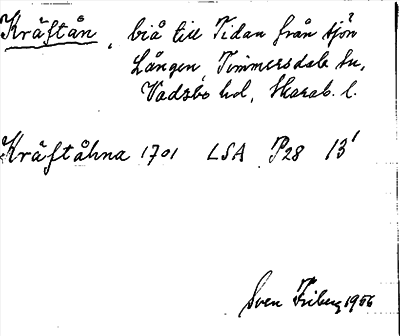 Kräftån, biå till Tidan från sjön
Lången, Timmersdala sn,
Vadsbo hd, Skarab. l.
Kräftåhna 1701 LSA P28 13¹
Sven Friberg 1956